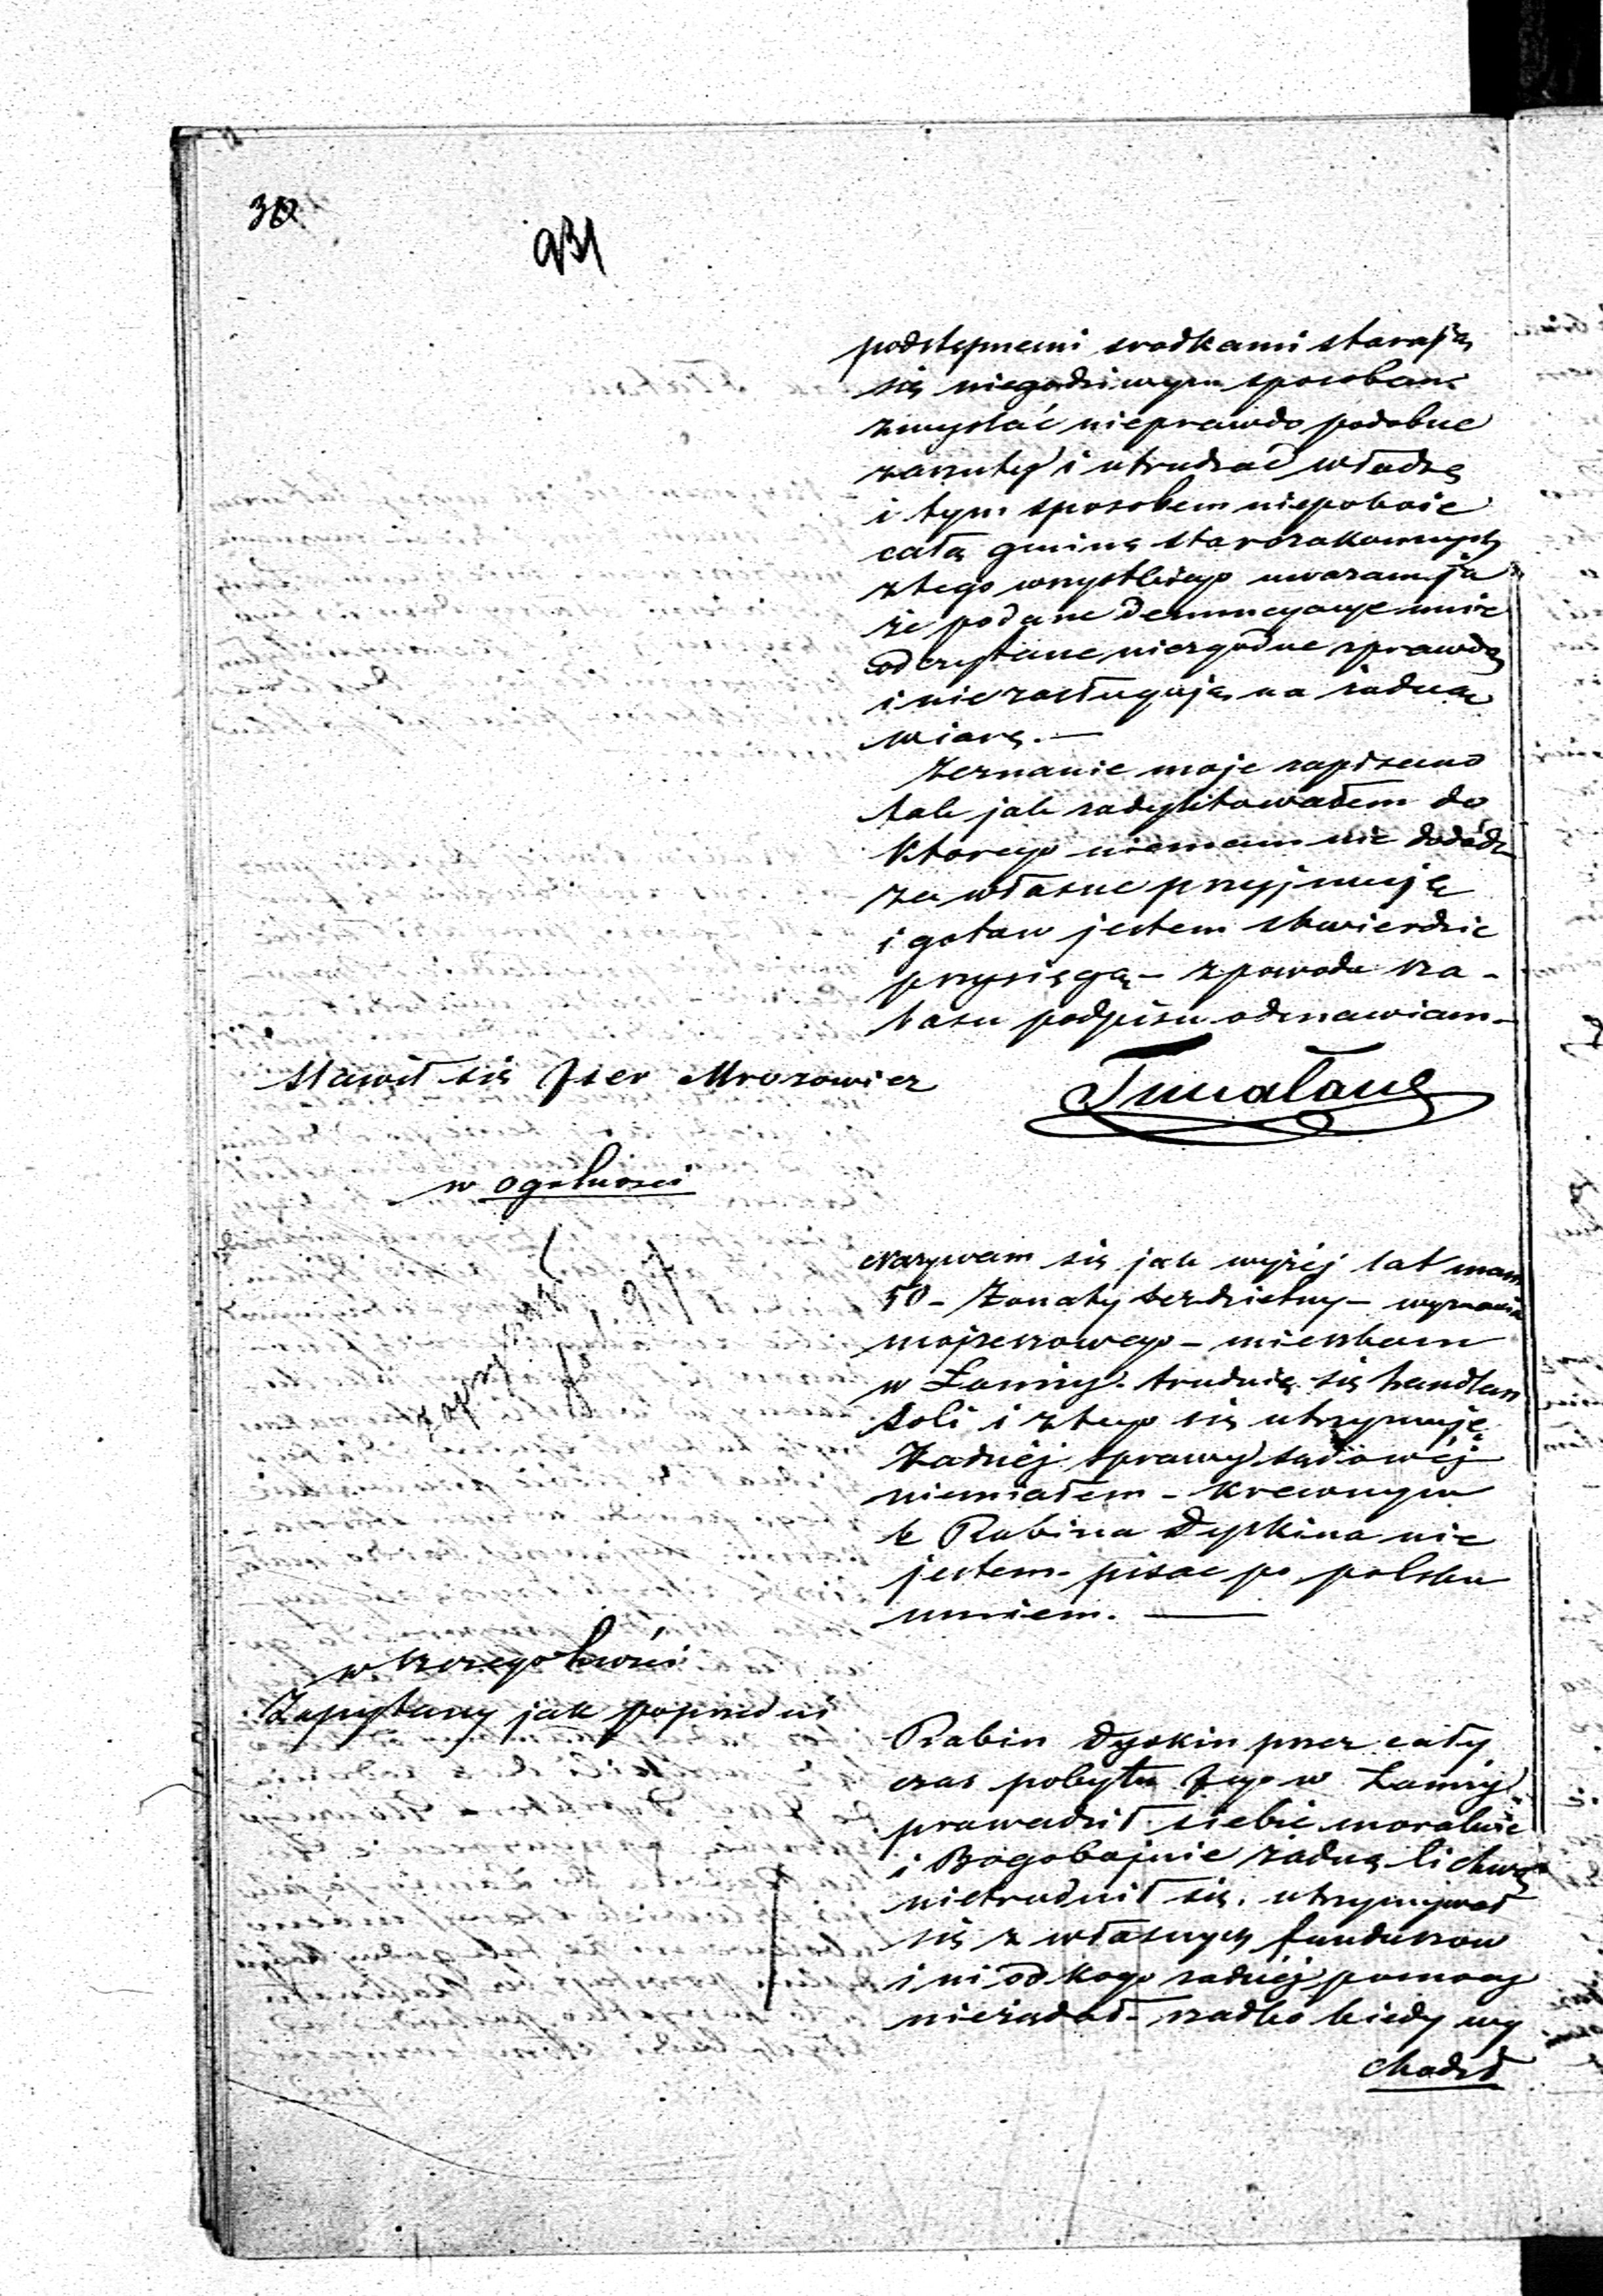 30
931
podstępnemi srodkami starają
się niegodziwym sposobem
zmyslać nieprawdo podobne
zarzuty i utrudzać władzę
i tym sposobem niepokoic
całą gminę starozakonnych
ztego wszystkiego uwazam ja
że podane denuncyacye mnie
odczytane niezgodne zprawdą
i nie zasługują na żadną
wiarę. —
Zeznanie moje zapisano
tak jak zadyktowałem do
ktorego niemam nic dodać
za własne przyjmuję
i gotow jestem stwierdzic
przysięgą – zpowodu sza-
basu podpisu odmawiam –
Stawił się Jser Mrozowicz
w ogolności
Nazywam się jak wyżéj lat mam
50 – Zonaty bezdzietny – wyznania
mojzeszowego – mieszkam
w Łomży. trudnię się handlem
soli i ztego się utrzymuję
Zadnéj sprawy sądowéj
niemiałem – krewnym
k Rabina Dyskina nie
jestem. pisac po polsku
umiem. —
w szczegolności
Zapytany jak poprzedni
Rabin Dyskin przez cały
czas pobytu Jego w Łomży
prowadził siebie moralnie
i Bogobojnie żadną lichwą
nietrudnił się, utrzymywał
się z własnych funduszow
i ni od kogo zadnéj pomocy
nieżądał – rzadko kiedy wy
chodził